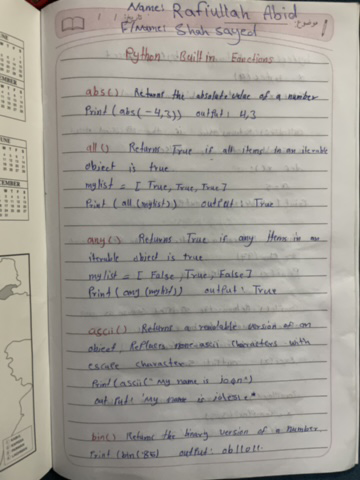 Name: Rafiullah Abid
F/Name: Shah sayed
Python Built in Fonctions
abs() Returns the absolute value of a number
Print (abs(-4,3)) output: 4,3
all() Returns True if all items in an iterable
object is true
mylist = [True, True, True]
Print (all (mylist)) output: True
any() Returns True if any Items in an
iterable object is true
mylist = [False, True, False]
Print (any (mylist)) output: True
ascii() Returns a readable version of an
object, Replaces none-ascii characters with
escape character
Print (ascii("My name is
out put: 'My name is
bin() Returns the binary version of a number
Print (bin(
output: